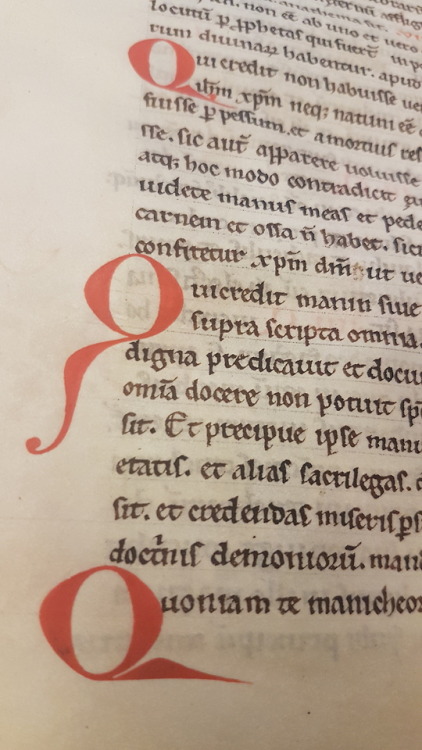 locutū p̱ ꝓphetas qui fuert̄
rum diuinarū habentur. apud
Qui credit non habuisse ue
ihm̄ xp̄m neq; natum eē
fuisse p̱ passum. et amortuis res
sse. sic aut̄ apparere uoluisse
atq; hoc modo contradicit
uidete manus meas et pede
carnem et ossa n̄ habet. sic
confitetur xp̄m dm̄ ut ue
Qui credit manin siue
supra scripta omnia.
digna predicauit et docu
om̄ia docere non potuit sp̄
sit. Et precipue ipse mani
etatis. et alias sacrilegas.
sit. et credendas miseris ꝑs
doctnis demoniorū. mani
Quoniam te manicheos